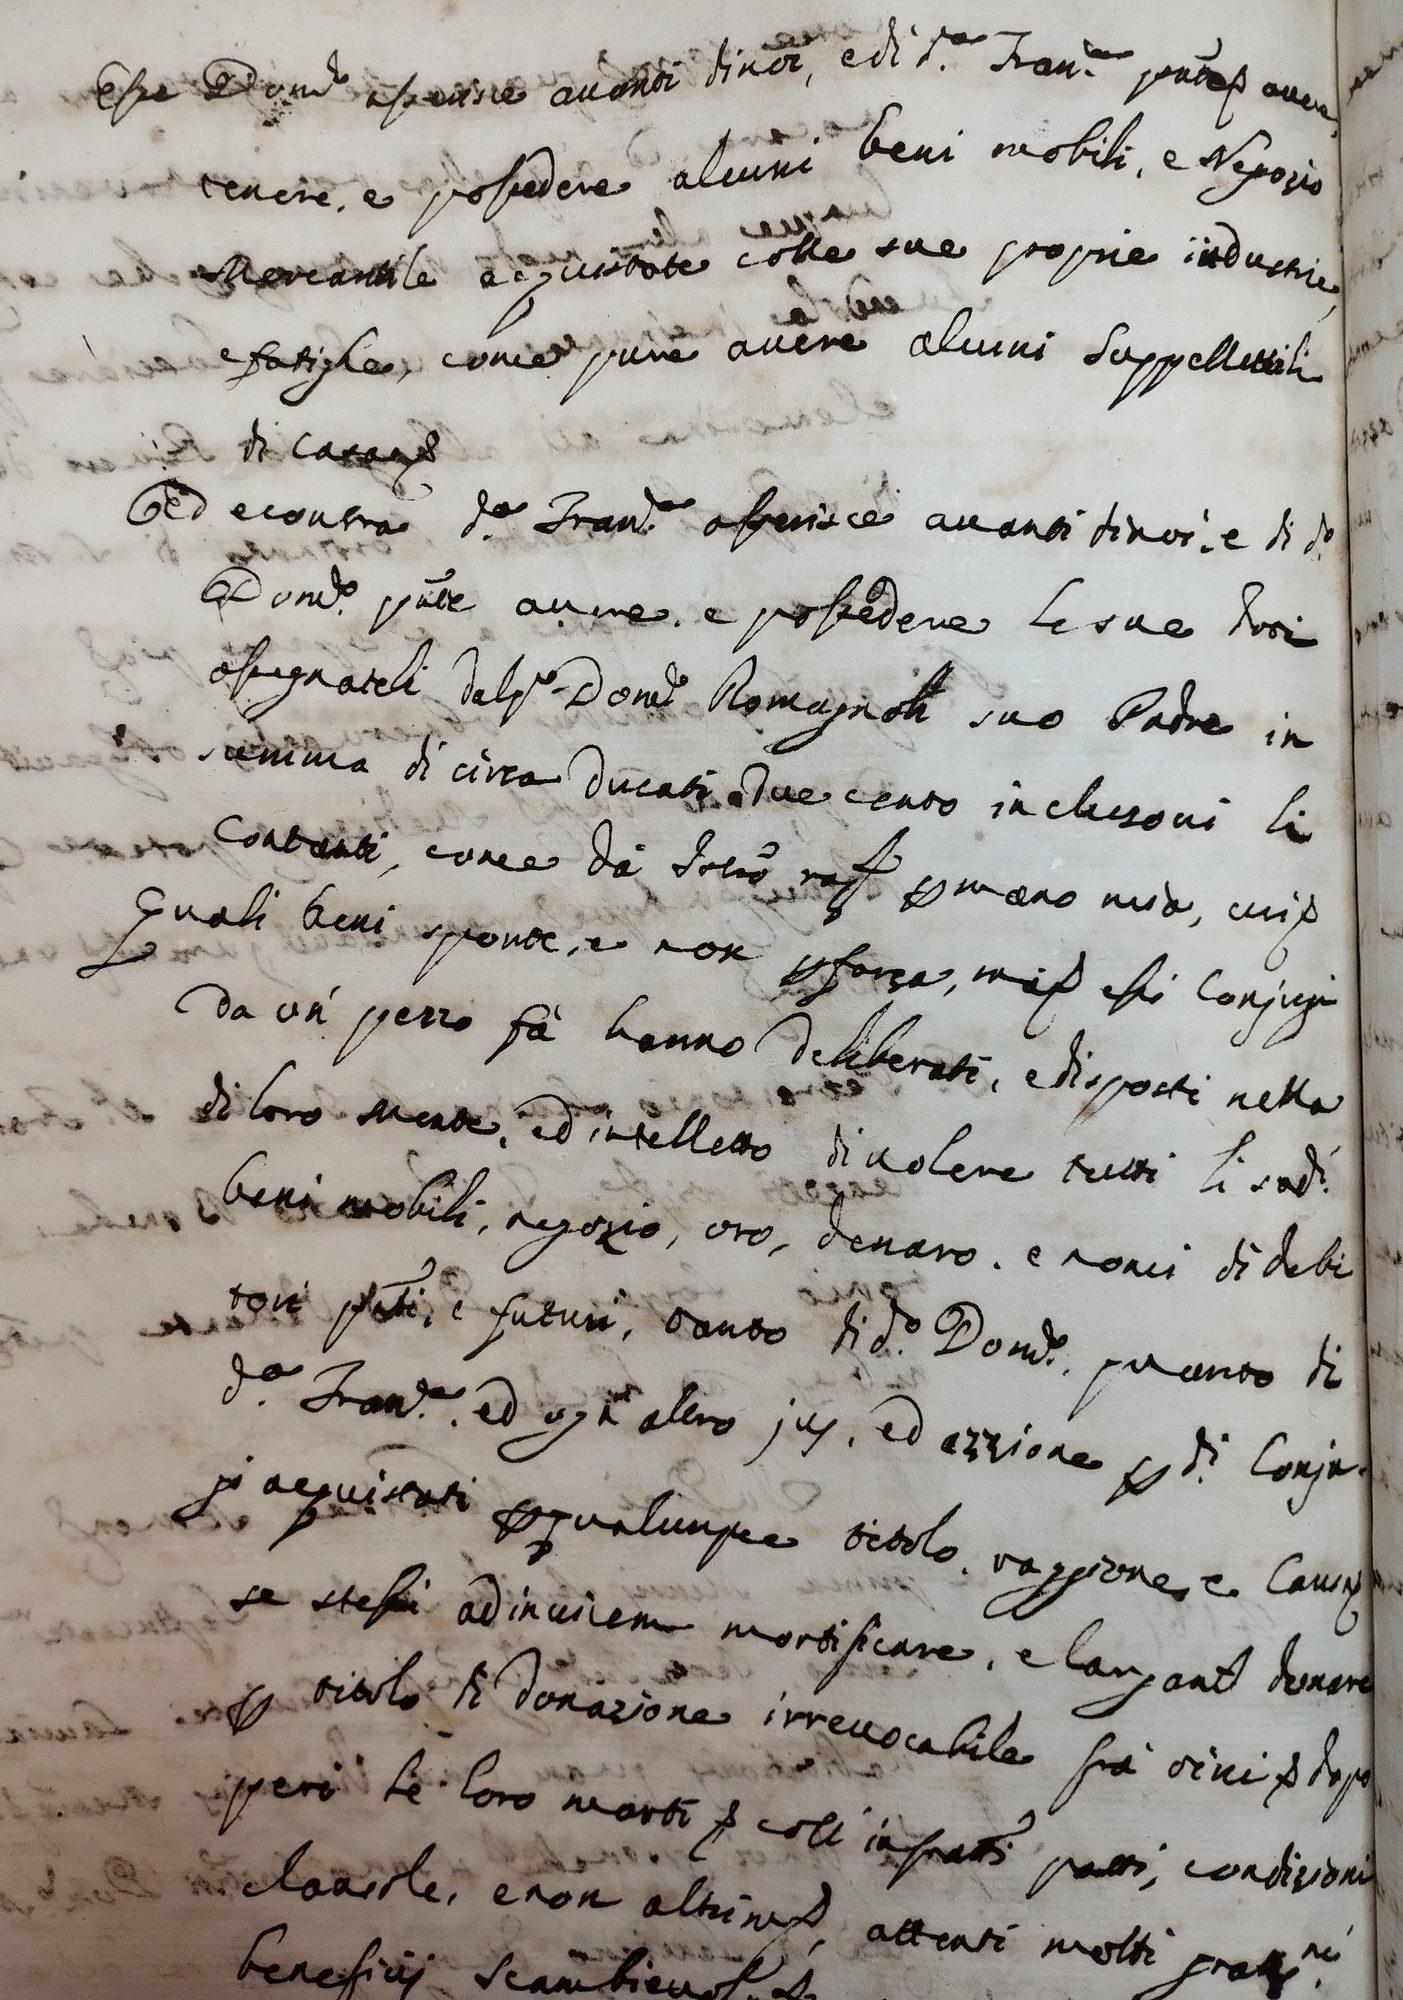 Esso Dom.co asserisce avanti di noi, e di d.a Fran.ca pñte avere,
tenere, e possedere alcuni beni mobili, e Negozio
Mercantile acquistate colle sue proprie industrie,
e fatighe, come pure avere alcuni suppellettili
di casa
Ed econtra d.a Fran.ca asserisce avanti di noi, e di d.o
Dom.co pñte avere, e possedere le sue doti
assegnateli dal q.m Dom.co Romagnoli suo Padre in
summa di circa Ducati due cento inclusovi li
contanti, come dà Istro per mano mia,
Quali beni sponte, e non per forza, essi Conjugi
da un' pezzo fà hanno deliberati, e disposti nella
di loro Mente, ed intelletto di volere tutti li sud.i
beni mobili, negozio, oro, denaro, e nomi di debi
tori pñti, e futuri, tanto di d.o Dom.co, quanto di
d.a Fran.ca, ed ogn' altro jus, ed azzione per d.i Conju-
gi acquistati per qualunque titolo, raggione, e Causa
se stessi adinvicem mortificare, e largam.te donare
per titolo di donazione irrevocabile frà vivi dopo
però le loro morti coll' infratti patti, condizioni
clausole, e non altrim.te, attenti molti
beneficij scambievol.